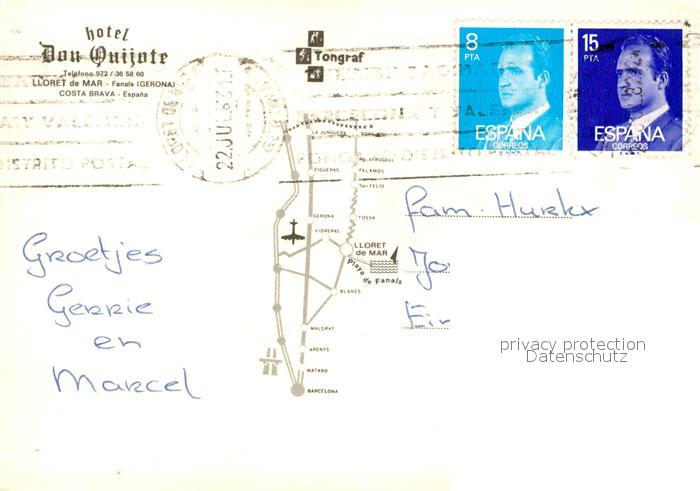 hotel
Don Quijote
Telefono 972 / 36 58 60
LLORET de MAR - Fanals (GERONA)
COSTA BRAVA - España
Tongraf
8
PTA
ESPAÑA
CORREOS
15
PTA
ESPAÑA
CORREOS
22 JUL 8
DISTRITO POSTAL
LA JUNQUERA
FIGUERAS
PALAFRUGELL
PALAMOS
San FELIU
GERONA
TOSSA
VIDRERAS
LLORET
de MAR
Playa de Fanals
BLANES
MALGRAT
ARENYS
MATARO
BARCELONA
Groetjes
Gerrie
en
Marcel
Fam. Hurkx
Jo
Ein
privacy protection
Datenschutz